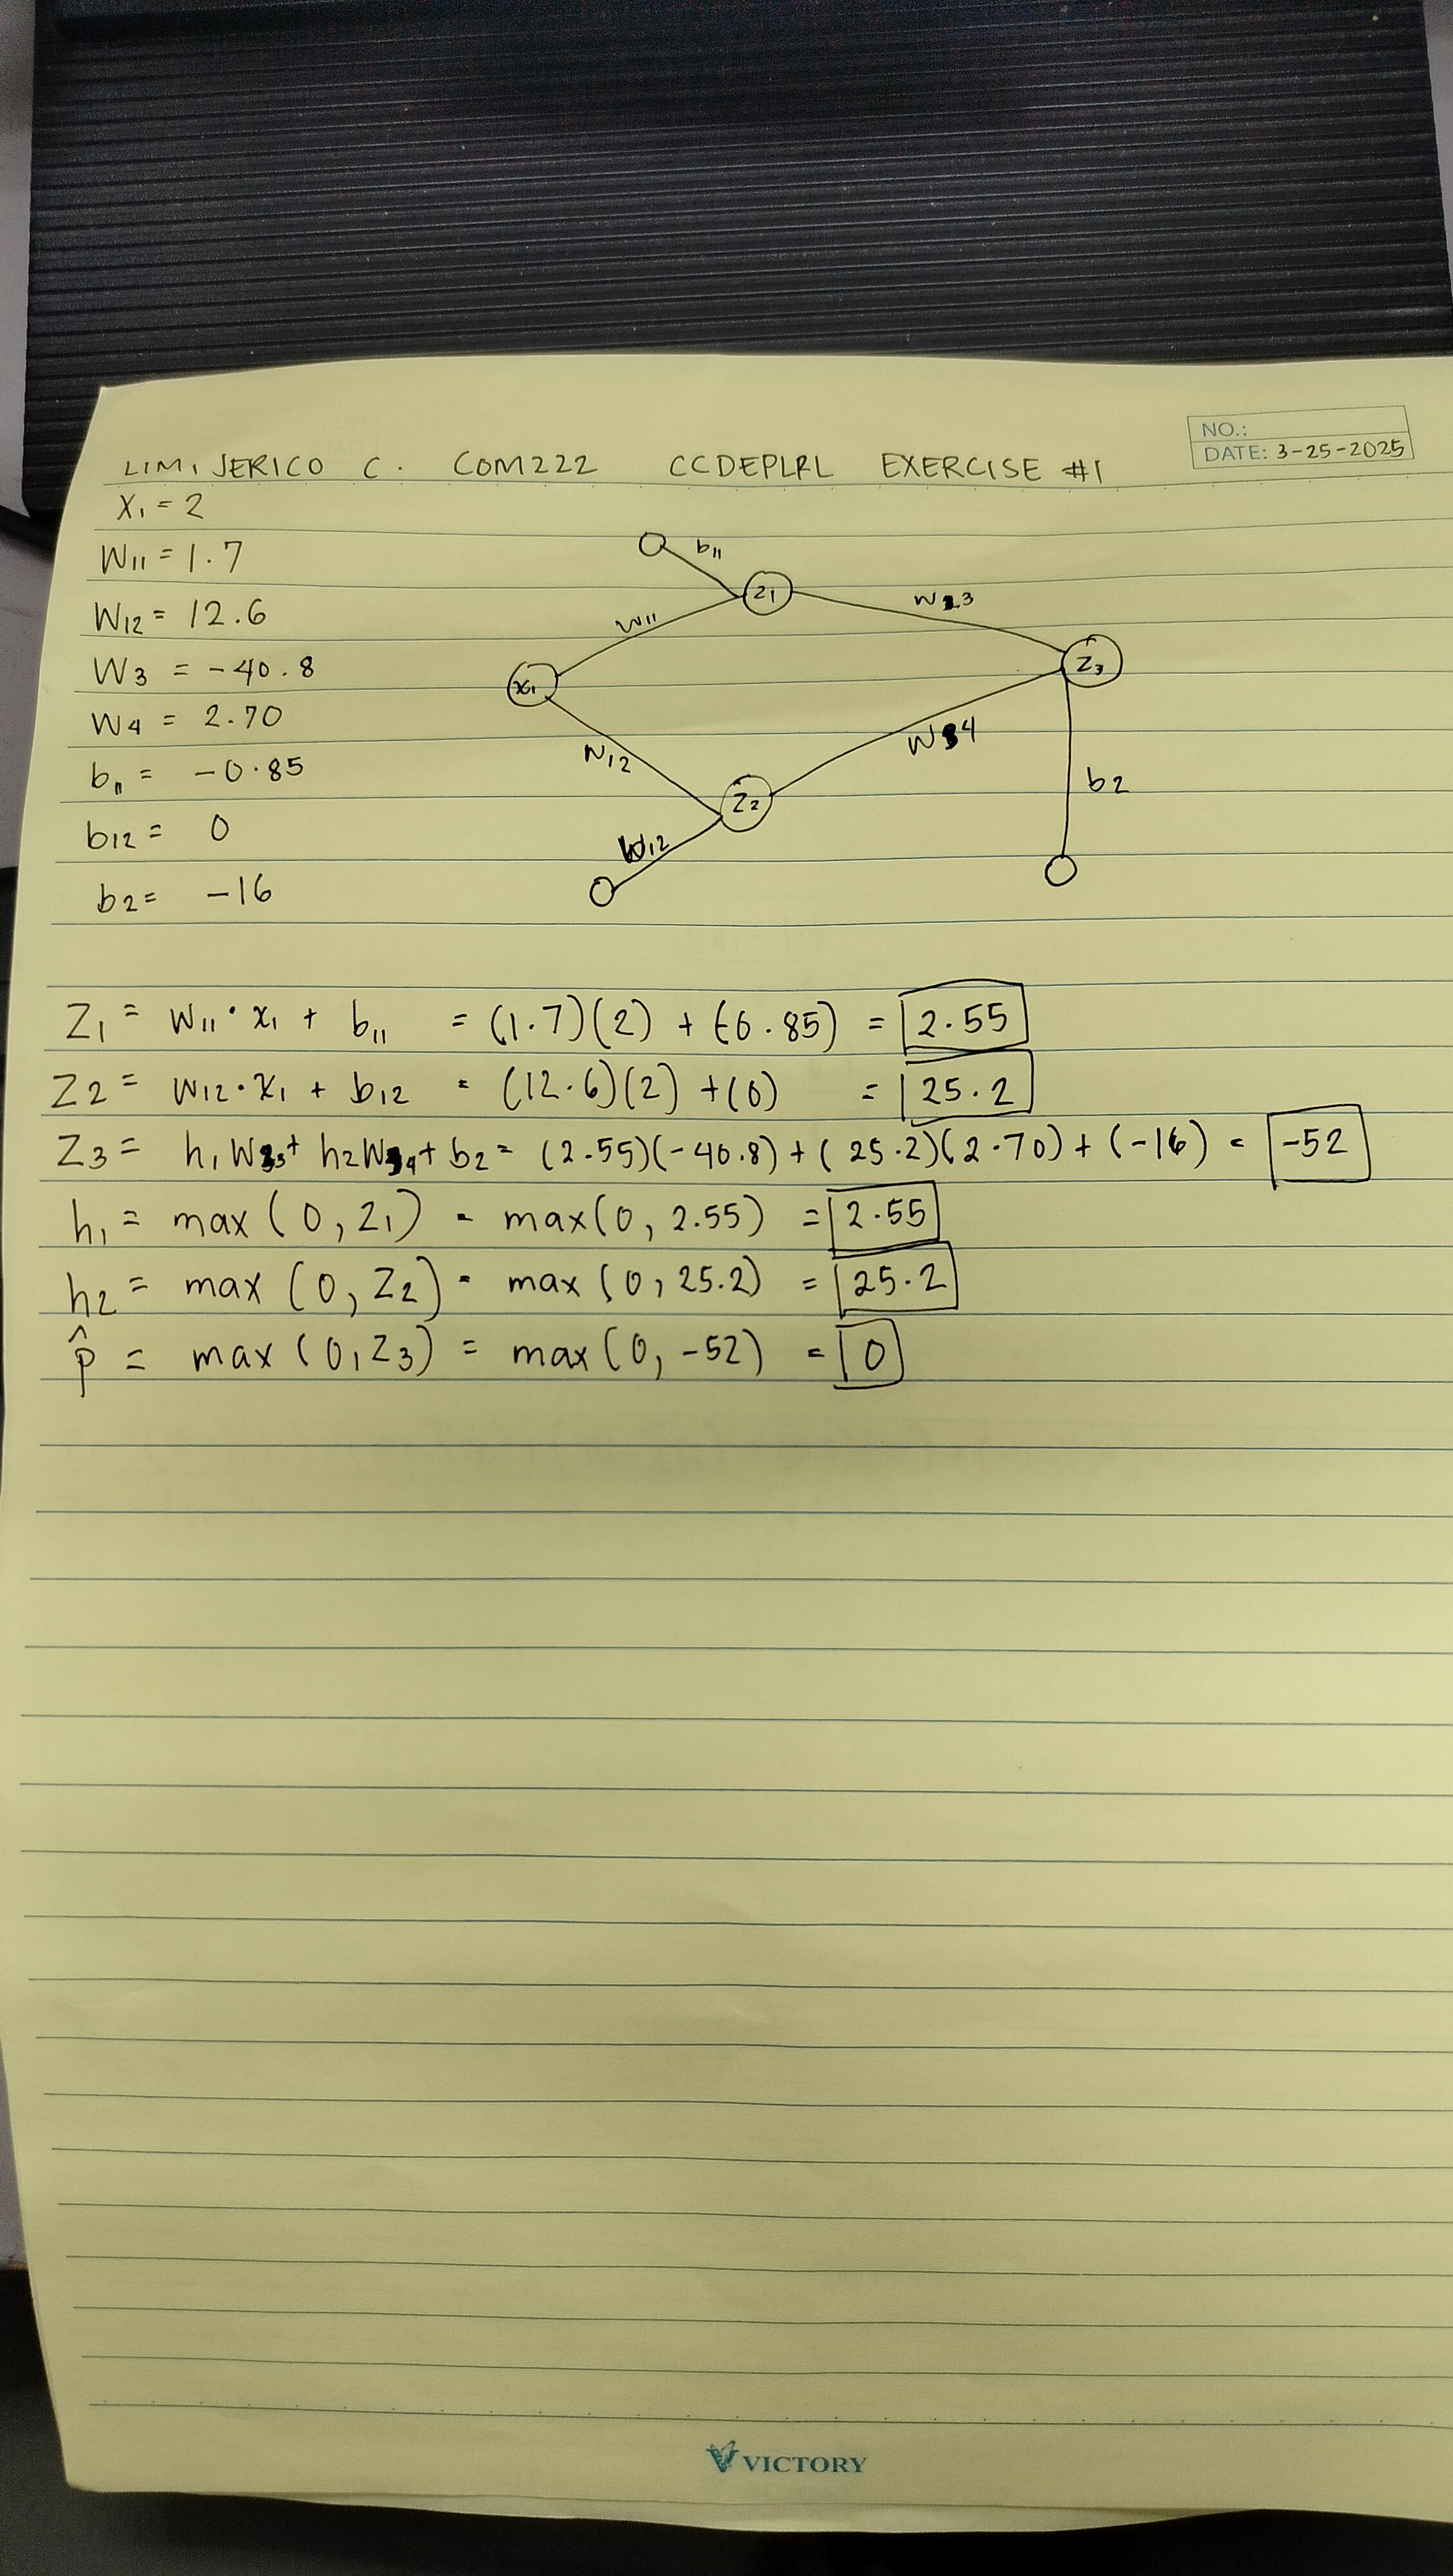 NO.:
DATE: 3-25-2025
LIM, JERICO C. COM222 CCDEPLRL EXERCISE #1
X₁ = 2
W₁₁ = 1.7
W₁₂ = 12.6
W₃ = -40.8
W₄ = 2.70
b₁₁ = -0.85
b₁₂ = 0
b₂ = -16
b₁₁
Z₁
W₁₁
W3
x₁
Z₃
W₁₂
W4
Z₂
b₂
b₁₂
Z₁ = W₁₁ · x₁ + b₁₁ = (1.7)(2) + (-0.85) = 2.55
Z₂ = W₁₂ · x₁ + b₁₂ = (12.6)(2) + (0) = 25.2
Z₃ = h₁W₃ + h₂W₄ + b₂ = (2.55)(-40.8) + (25.2)(2.70) + (-16) = -52
h₁ = max (0, Z₁) = max(0, 2.55) = 2.55
h₂ = max (0, Z₂) = max (0, 25.2) = 25.2
p̂ = max (0, Z₃) = max (0, -52) = 0
VICTORY